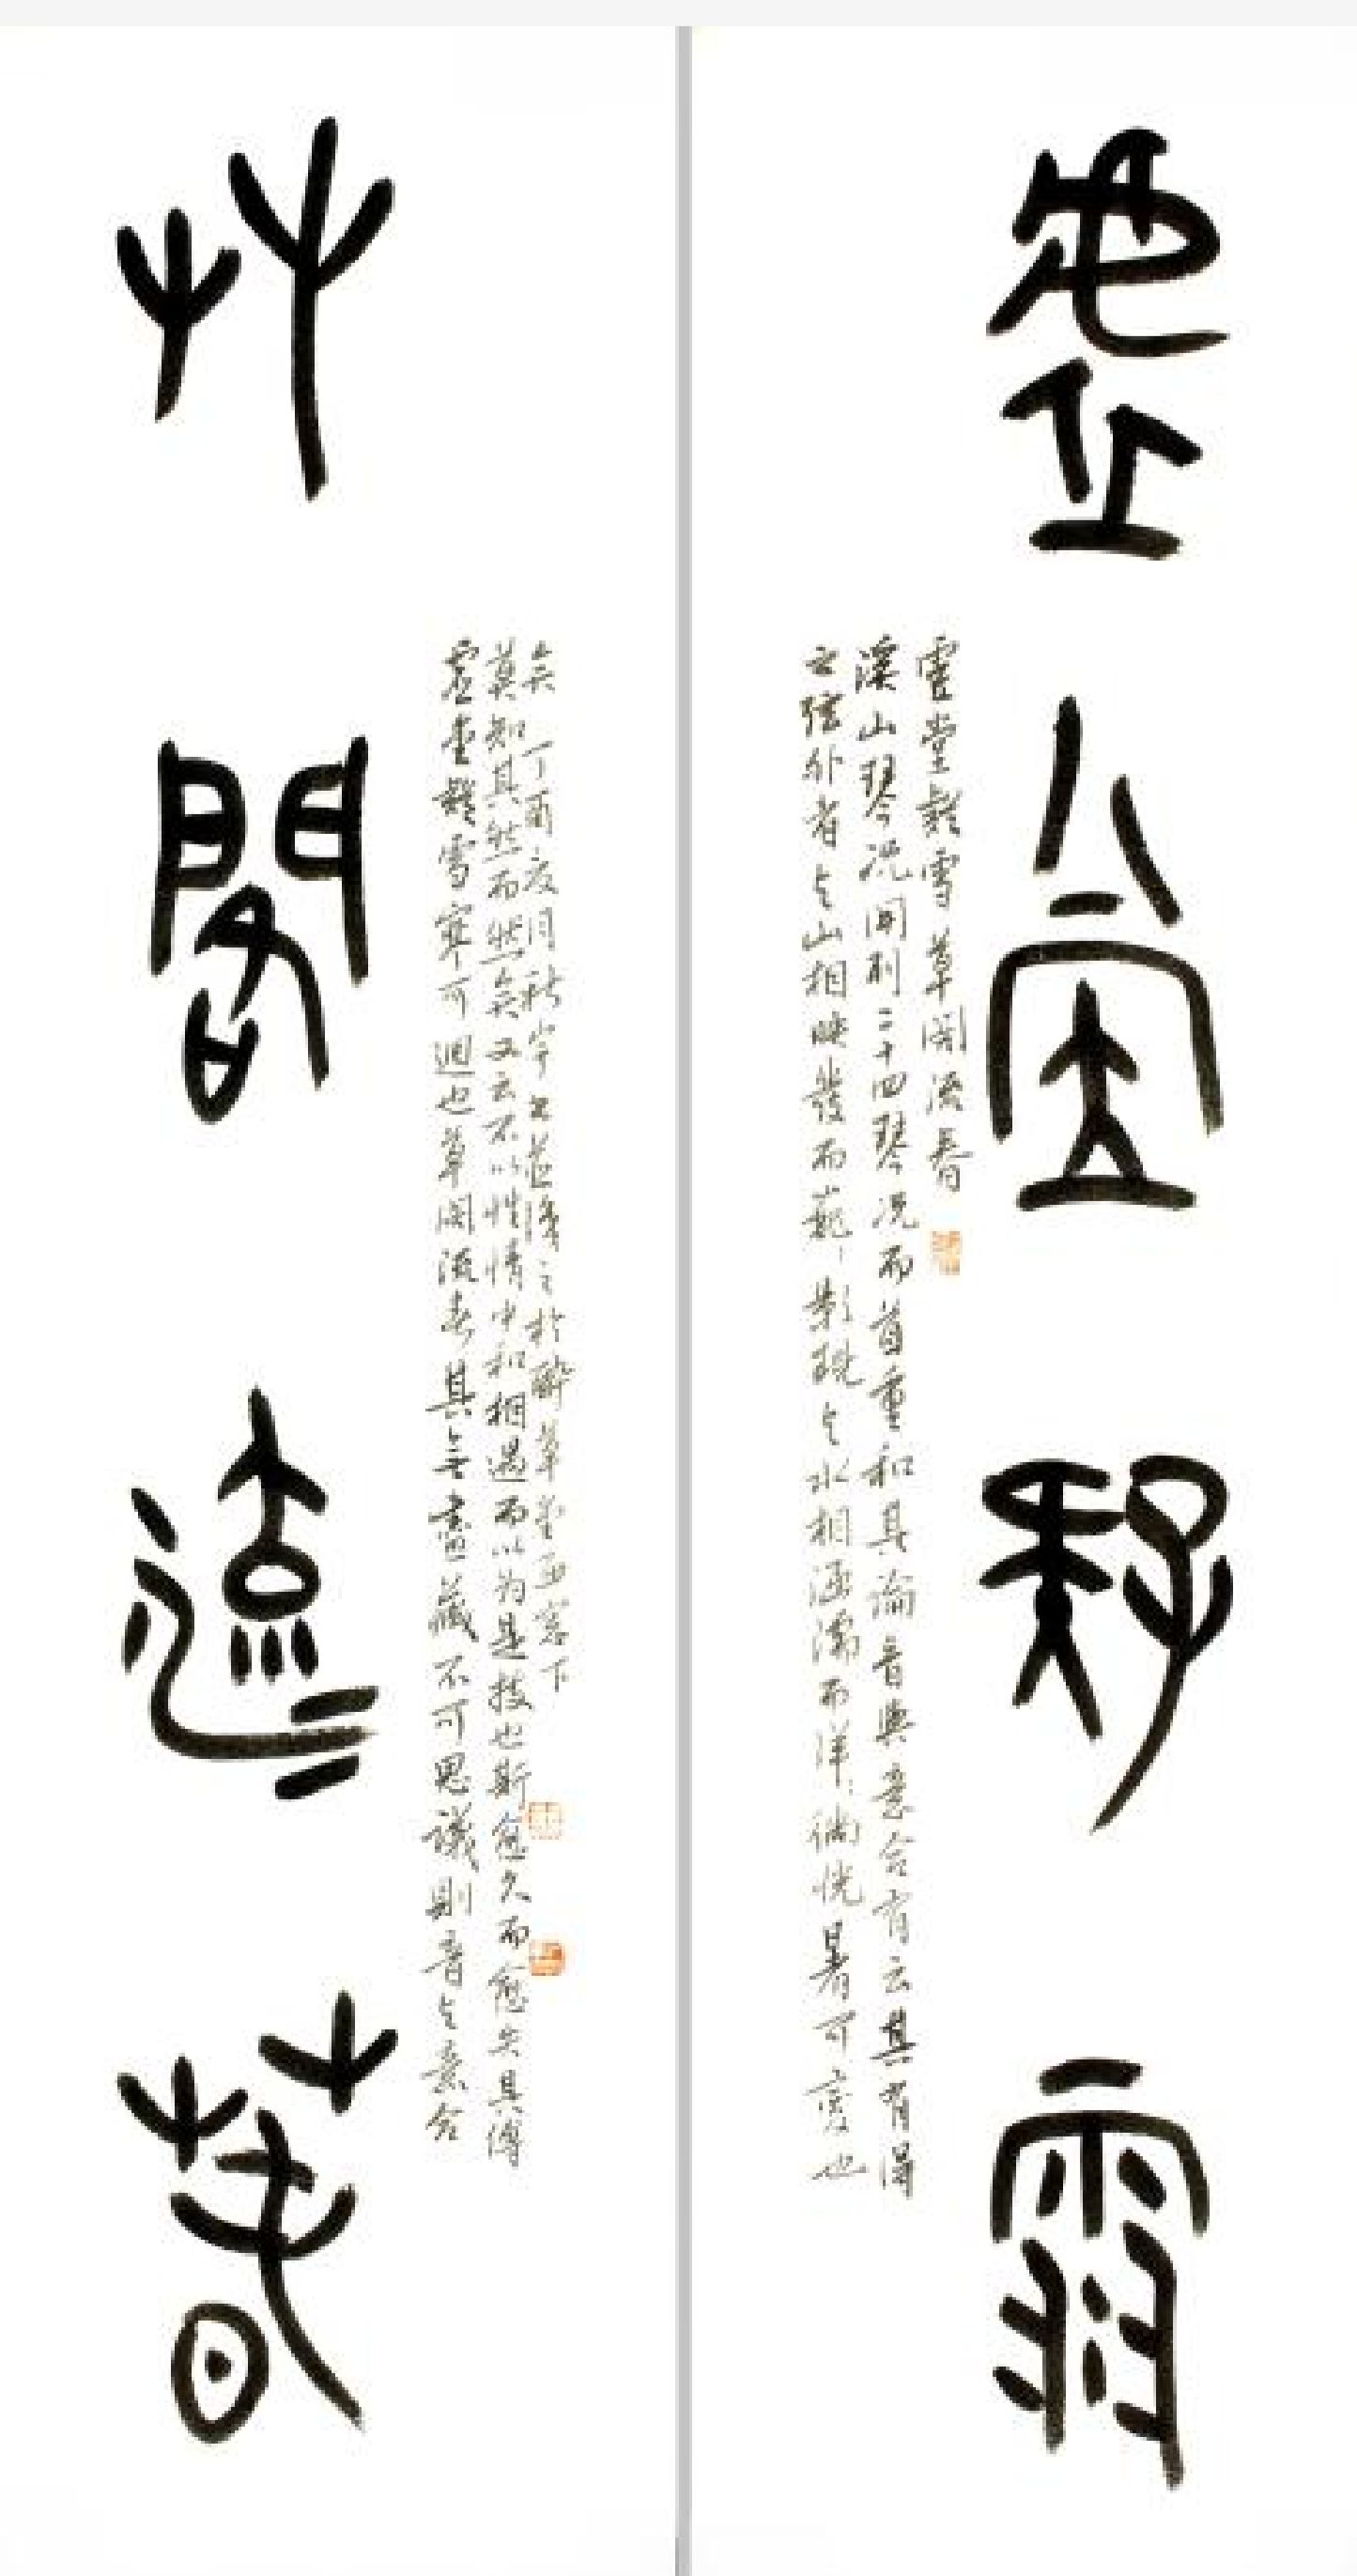 虛堂疑雪
虛堂疑雪草閣流春
溪山琴况開列二十四琴况而首重和其論音與意合有云其有得
之弦外者与山相映發而巍〻影現与水相涵濡而洋〻徜恍暑可變也
艸閣流春
虛堂疑雪寒可迴也草閣流春其無盡藏不可思議則音与意合
莫知其然而然矣又云不以性情中和相遇而以为是技也斯愈久而愈失其傳
矣 丁酉 月秋 之於醉草堂西窗下